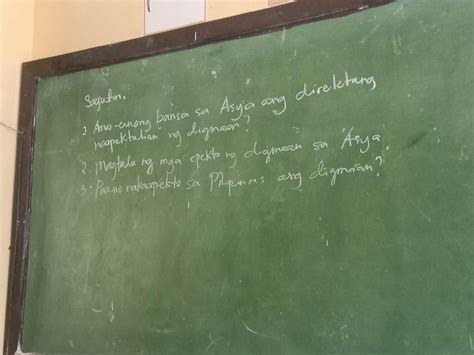 Sagutin.
1. Ano-anong bansa sa Asya ang direktang
naapektuhan ng digmaan?
2. Magtala ng mga epekto ng digmaan sa Asya.
3. Paano nakaapekto sa Pilipinas ang digmaan?